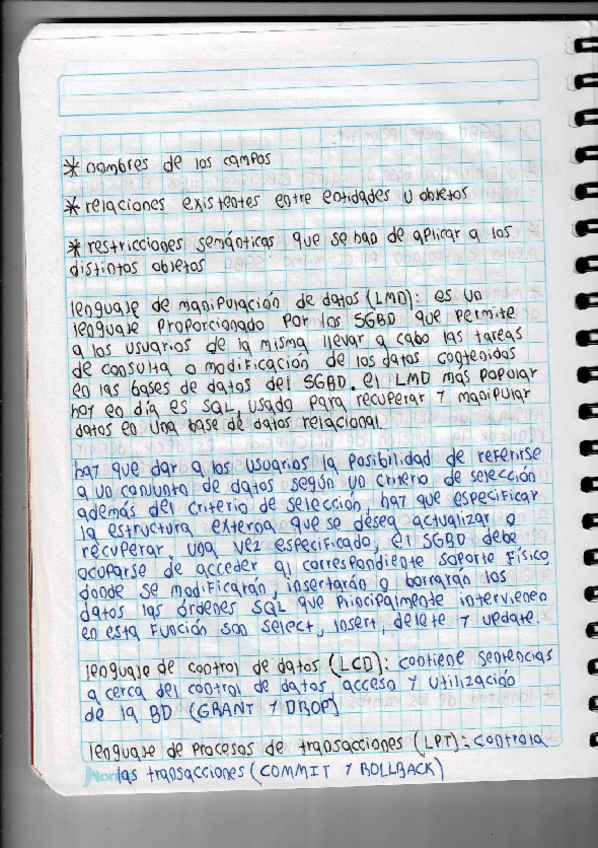 * nombres de los campos
* relaciones existentes entre entidades u objetos
* restricciones semánticas que se han de aplicar a los
distintos objetos
lenguaje de manipulación de datos (LMD): es un
lenguaje proporcionado por los SGBD que permite
a los usuarios de la misma llevar a cabo las tareas
de consulta o modificación de los datos contenidos
en las bases de datos del SGBD. el LMD más popular
hoy en día es SQL, usado para recuperar y manipular
datos en una base de datos relacional.
hay que dar a los usuarios la posibilidad de referirse
a un conjunto de datos según un criterio de selección
además del criterio de selección, hay que especificar
la estructura externa que se desea actualizar o
recuperar. una vez especificado, el SGBD debe
ocuparse de acceder al correspondiente soporte físico
donde se modificarán, insertarán o borrarán los
datos las órdenes SQL que principalmente intervienen
en esta función son select, insert, delete y update.
lenguaje de control de datos (LCD): contiene sentencias
a cerca del control de datos, acceso y utilización
de la BD (GRANT y DROP)
lenguaje de procesos de transacciones (LPT): controla
las transacciones (COMMIT y ROLLBACK)